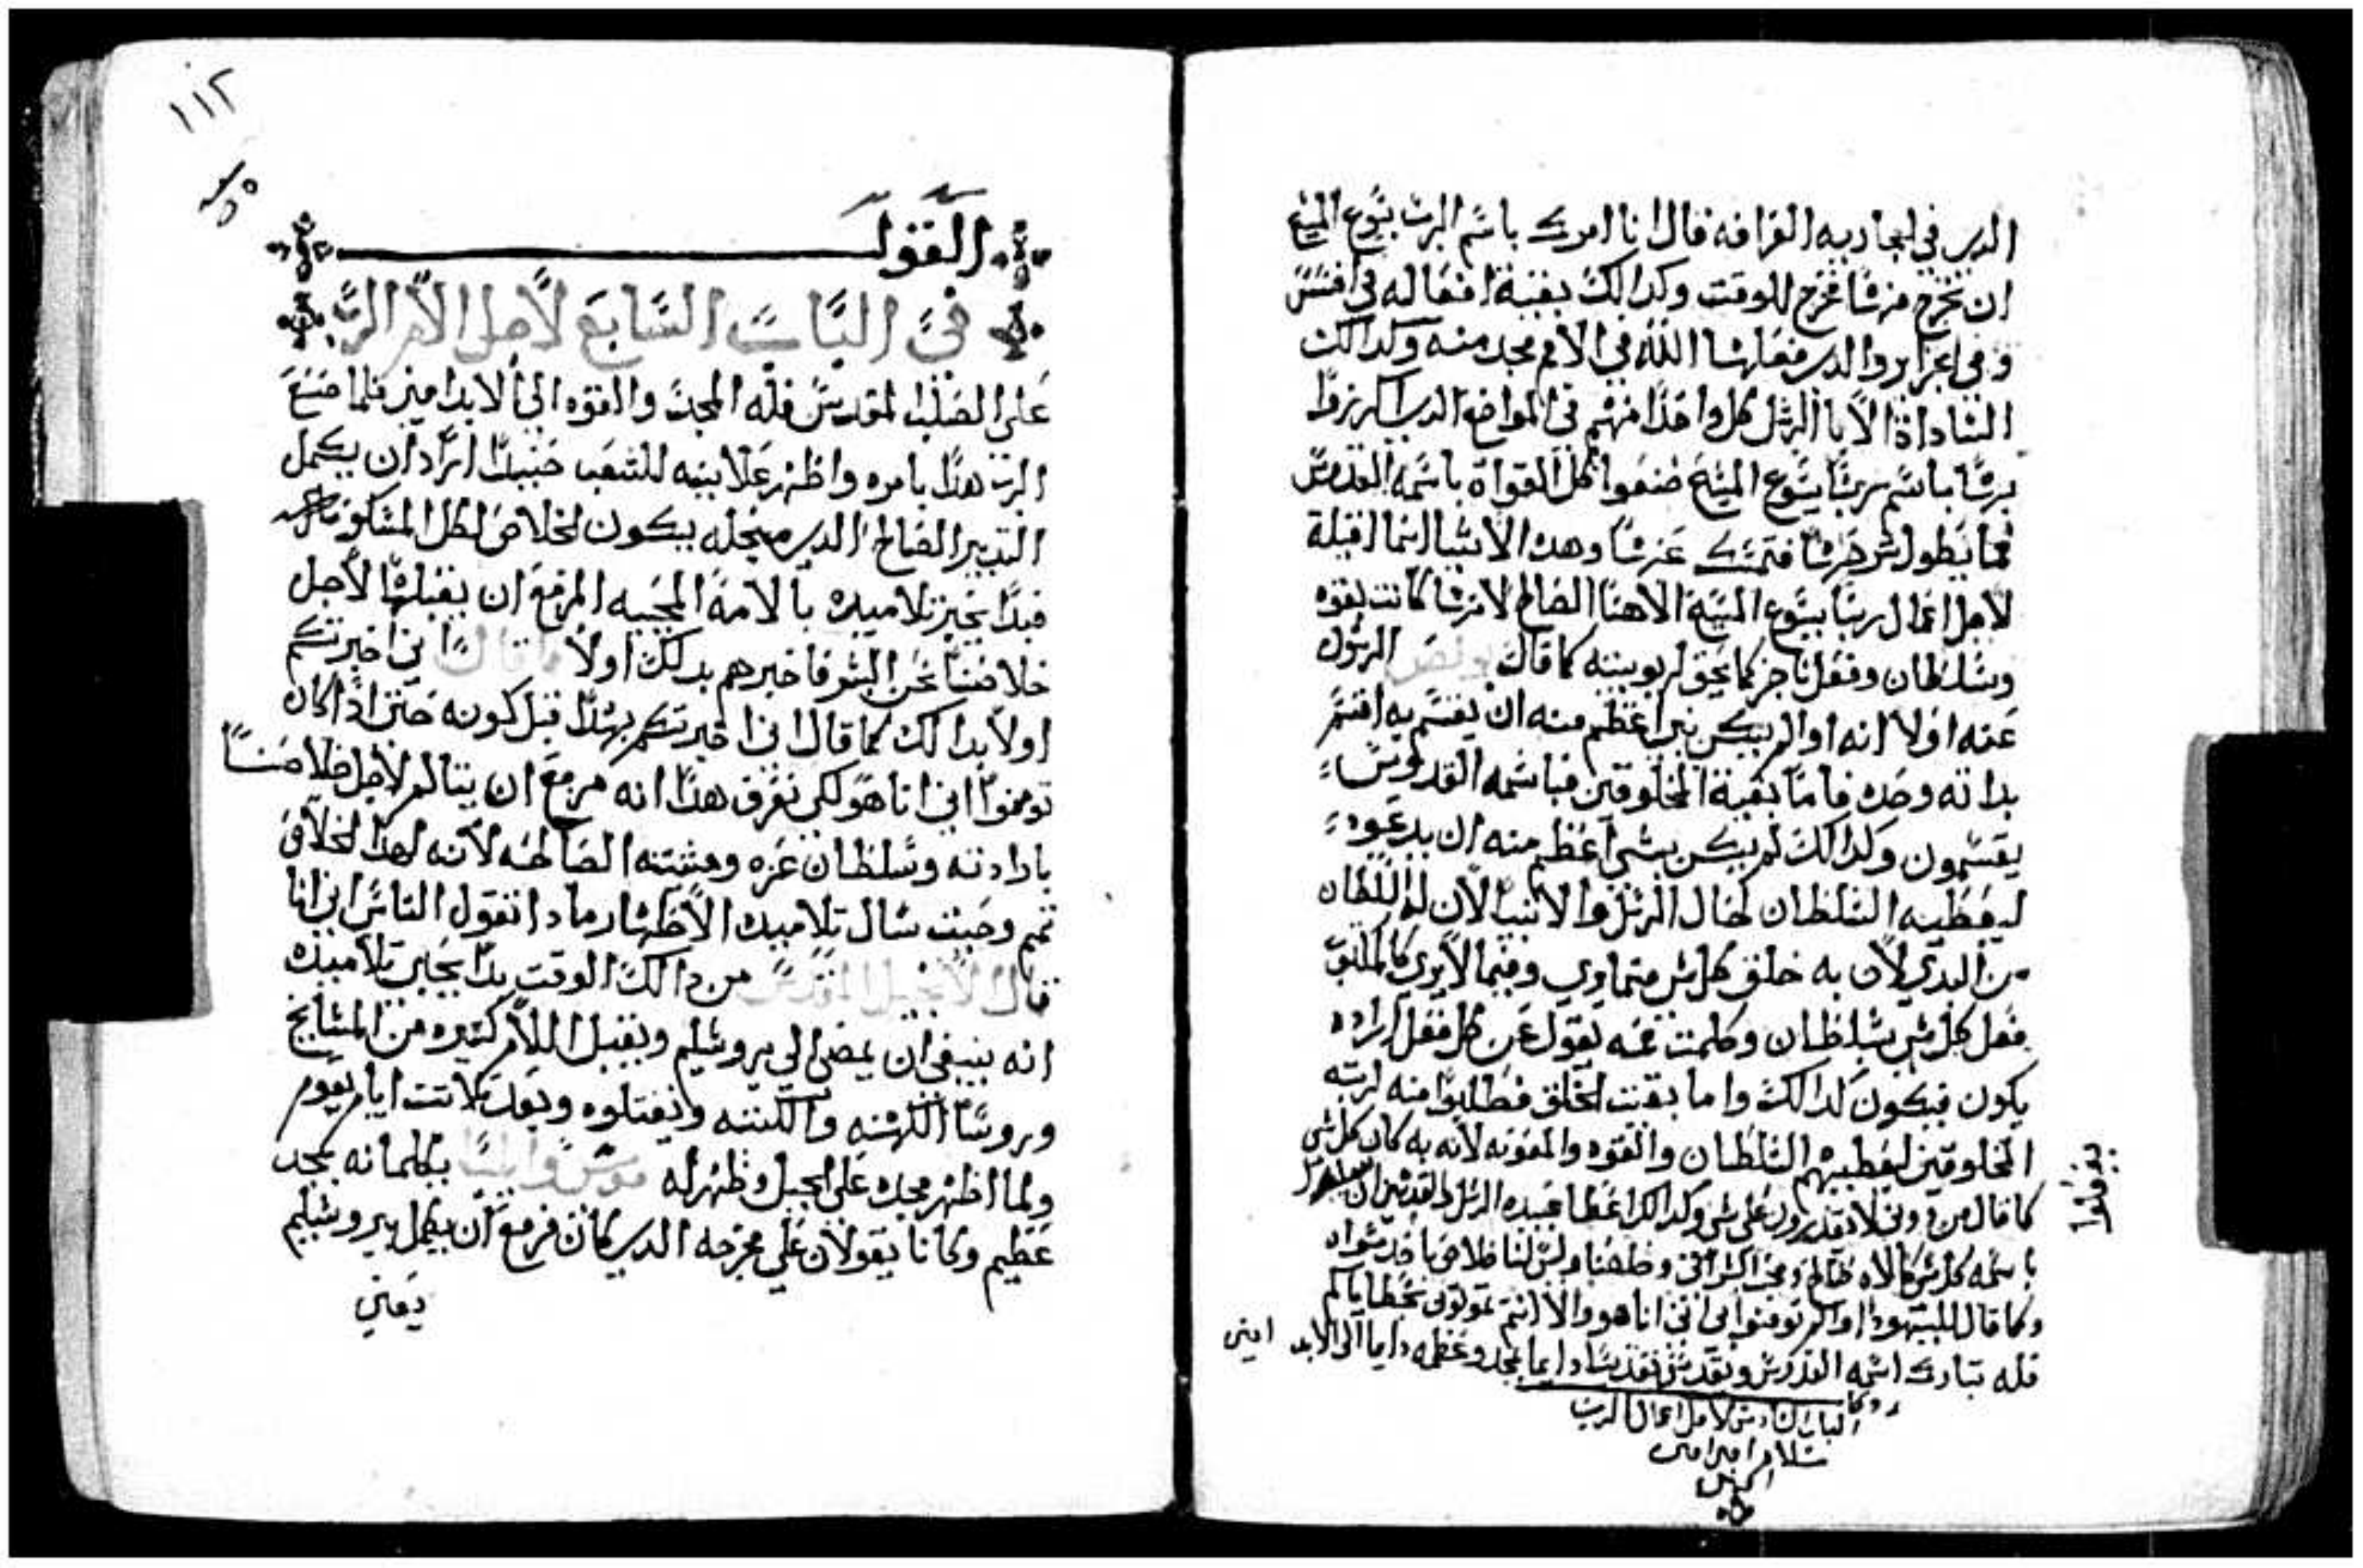 الدي في الجاريه العرافه قال انا امرك باسم الرب يسوع المسيح
ان تخرج منها فخرج للوقت وكدالك بقية افعاله في افسس
وفي اعزاير والدي فعلها الله في الامم مجد منه وكدالك
الساداة الابا الرسل كل واحدًا منهم في المواضع الدي اكرزوا
باسم ربنا يسوع المسيح صنعوا كل القواة باسمه القدوس
فما يطول شرحها فنمسك عنها وهده الاشيا انما اقيلة
لاجل اعمال ربنا يسوع المسيح الاهنا الصالح لانها كانت بقوه
وسلطان وفعل ناجز كما يحق لربوبيته كما قال بولص الرسول
عنه اولا انه اد لم يكن شي اعظم منه ان يقسم به اقسم
بداته وحده فاما بقية المخلوقين فباسمه القدوس
يقسمون وكدالك لم يكن شي اعظم منه ان يدعوه
ليعطيه السلطان كحال الرسل والانبيا لان له السلطان
من البدي لان به خلق كل شي سماوي وفيما لايري
فعل كل شي بسلطان وكلمته عنه تقول عن كل فعل اراده
يكون فيكون كدالك واما بقيت الخلق فطلبوا منه
المخلوقين ليعطيهم السلطان والقوه والمعونه لانه به كان كل شي
كما قال من دوني لا تقدرون علي شي وكدالك اعطا عبيده الرسل والقديسين ان
يفعلوا
باسمه كل شي كالاه صالح ومحب البشر وخلصنا وليس لنا خلاص باحد سواه
وكما قال لليهود اد لم تومنوا بي اني انا هو والا انتم تموتون بخطاياكم
فله تبارك اسمه القدوس وتقدس تقديسًا دايما بمجد وعظمه دايما الي الابد امين
الباب السادس لاجل اعمال الرب
بسلام امين امين
امين
١١٢
القول
في الباب السابع لاجل الام الرب
علي الصليب المقدس فله المجد والقوه الي الابد امين فلما صنع
الرب هدا بامره واظهر علانيه للشعب حينيدًا اراد ان يكمل
التدبير الصالح الدي من اجله يكون الخلاص لكل المسكونه
فبدا يخبر تلاميده بالامه المحييه المزمع ان يقبلها لاجل
خلاصنا نحن البشر فاخبرهم بدلك اولا قايلًا اني اخبرتكم
اولا بدالك كما قال اني اخبرتكم بهدا قبل كونه حتي ادا كان
تومنوا اني انا هو لكي نعرف هدا انه مزمع ان يتالم لاجل خلاصنا
بارادته وسلطان عزه ومشيته الصالحه لانه لهدا الخلاص
تمم وحيت سال تلاميده الاطهار مادا تقول الناس اني انا
قال الانجيل المقدس من دالك الوقت بدا يخبر تلاميده
انه ينبغي ان يمضي الي يروشليم ويقبل الام كتيره من المشايخ
وروسا الكهنه والكتبه ويقتلوه وبعد تلاتت ايام يقوم
ولما اظهر مجده علي الجبل وظهر له موسي وايليا يكلمانه بمجد
عظيم وكانا يقولان علي مخرجه الدي كان مزمع ان يكمل بيروشليم
يعني